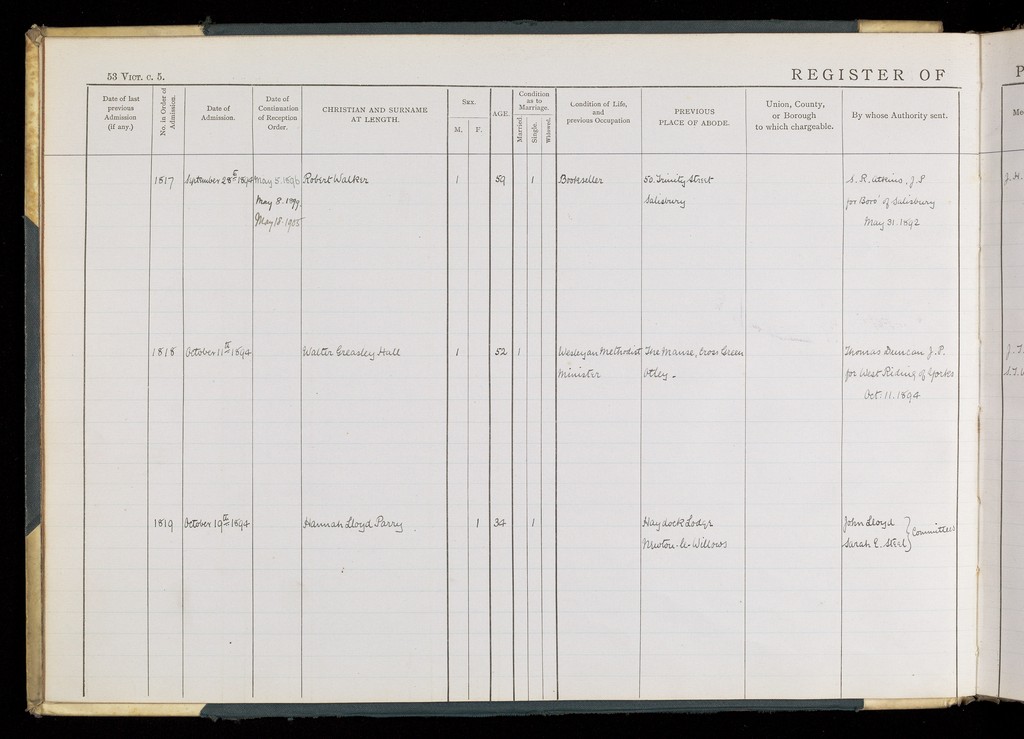 53 VICT. c. 5.
REGISTER OF
Date of last previous Admission (if any.)
No. in Order of Admission.
Date of Admission.
Date of Continuation of Reception Order.
CHRISTIAN AND SURNAME AT LENGTH.
SEX.
M.
F.
AGE.
Condition as to Marriage.
Married.
Single.
Widowed.
Condition of Life, and previous Occupation
PREVIOUS PLACE OF ABODE.
Union, County, or Borough to which chargeable.
By whose Authority sent.
1817 September 28th 1894 May 8. 1896 Robert Walker 1 59 1 Bookseller 50. Trinity Street S. R. Atkins, J.P. J. H.
May 8. 1899. Salisbury for Boro' of Salisbury
May 18. 1905 May 31. 1892
1818 October 11th 1894 Walter Greasley Hall 1 52 1 Wesleyan Methodist The Manse, Cross Green Thomas Duncan J.P.
Minister Otley. for West Riding of Yorks
Oct. 11. 1894
1819 October 19th 1894 Hannah Lloyd Parry 1 34 1 Haydock Lodge John Lloyd
Newton-le-Willows Sarah E. Steel } Committees